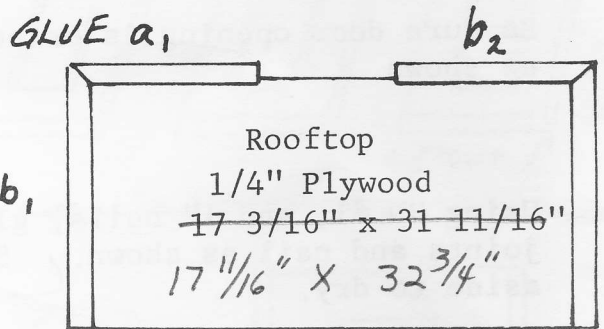 GLUE a₁ b₂
Rooftop
1/4" Plywood
b₁
17 3/16" x 31 11/16"
17 11/16" X 32 3/4"